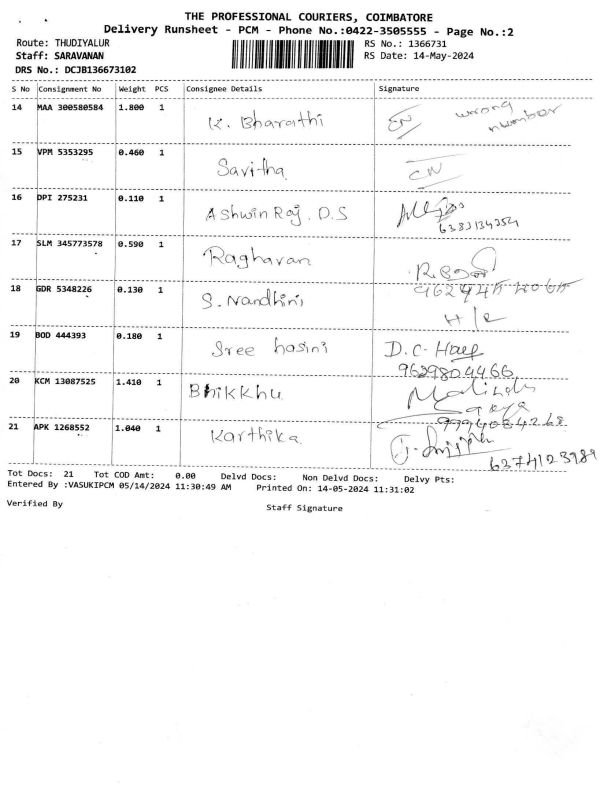 THE PROFESSIONAL COURIERS, COIMBATORE
Delivery Runsheet - PCM - Phone No.:0422-3505555 - Page No.:2
Route: THUDIYALUR RS No.: 1366731
Staff: SARAVANAN RS Date: 14-May-2024
DRS No.: DCJB136673102
S No Consignment No Weight PCS Consignee Details Signature
14 MAA 300580584 1.800 1 K. Bharathi wrong number
15 VPM 5353295 0.460 1 Savitha CN
16 DPI 275231 0.110 1 Ashwin Raj. D.S
6383134354
17 SLM 345773578 0.590 1 Raghavan
18 GDR 5348226 0.130 1 S. Nandhini
H/R
19 BOD 444393 0.180 1 Sree hasini D.C-
9629804466
20 KCM 13087525 1.410 1 Bhikkhu
21 APK 1268552 1.040 1 Karthika
6374123989
Tot Docs: 21 Tot COD Amt: 0.00 Delvd Docs: Non Delvd Docs: Delvy Pts:
Entered By :VASUKIPCM 05/14/2024 11:30:49 AM Printed On: 14-05-2024 11:31:02
Verified By Staff Signature